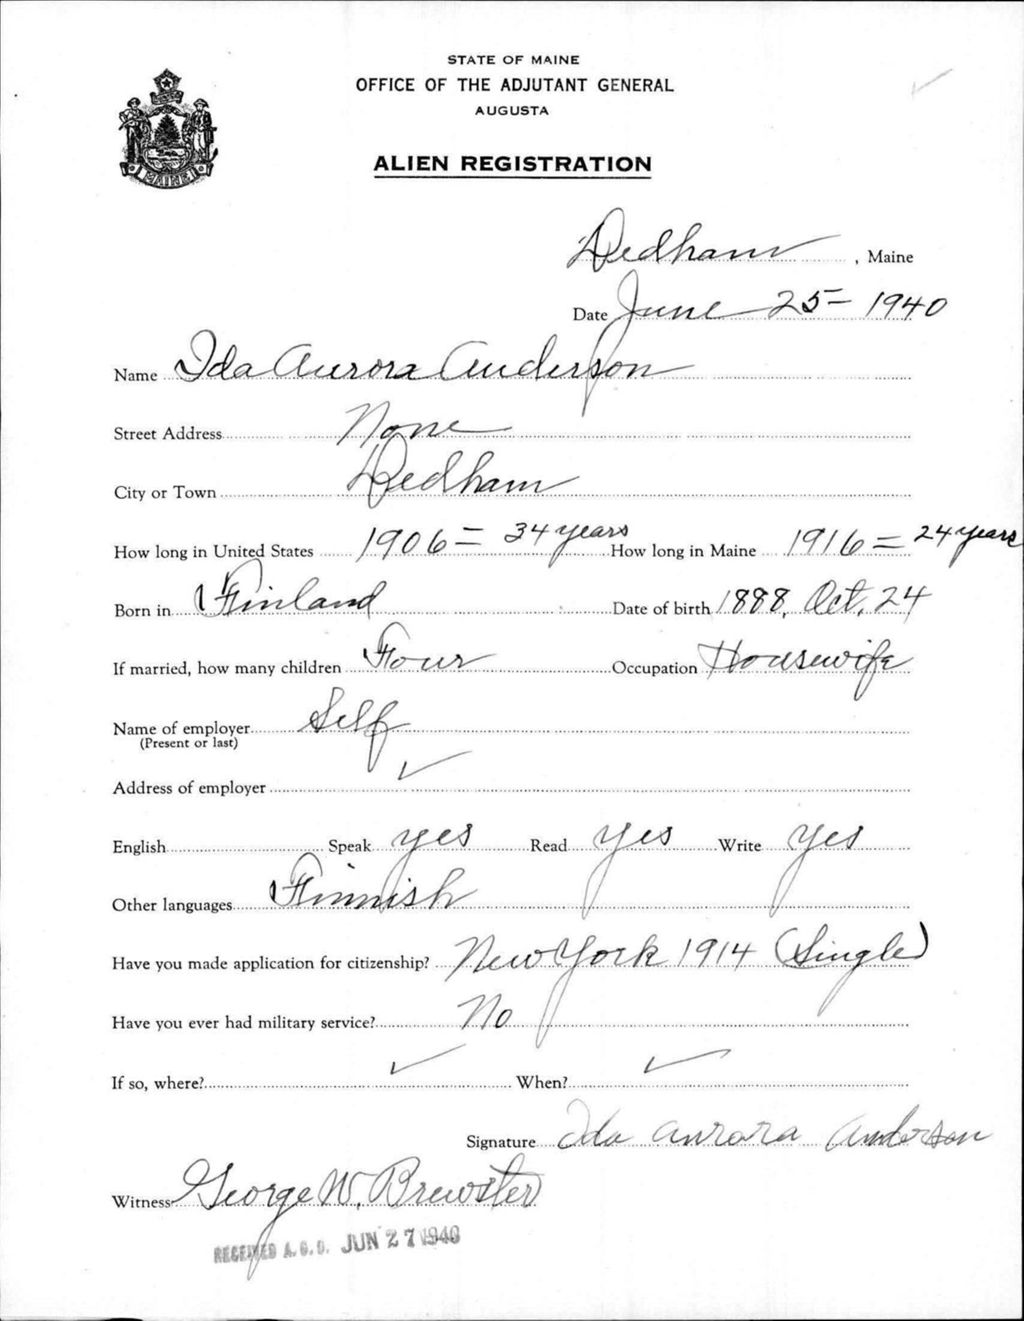 STATE OF MAINE
OFFICE OF THE ADJUTANT GENERAL
AUGUSTA
ALIEN REGISTRATION
MAINE
Dedham, Maine
Date June 25- 1940
Name Ida Aurora Anderson
Street Address None
City or Town Dedham
How long in United States 1906 = 34 years How long in Maine 1916 = 24 years
Born in Finland Date of birth 1888, Oct, 24
If married, how many children Four Occupation Housewife
Name of employer Self
(Present or last)
Address of employer
English Speak yes Read Yes Write Yes
Other languages Finnish
Have you made application for citizenship? New York 1914 (Single)
Have you ever had military service? No
If so, where? When?
Signature Ida Aurora Anderson
Witness George W. Brewster
RECEIVED A.G.O. JUN 27 1940